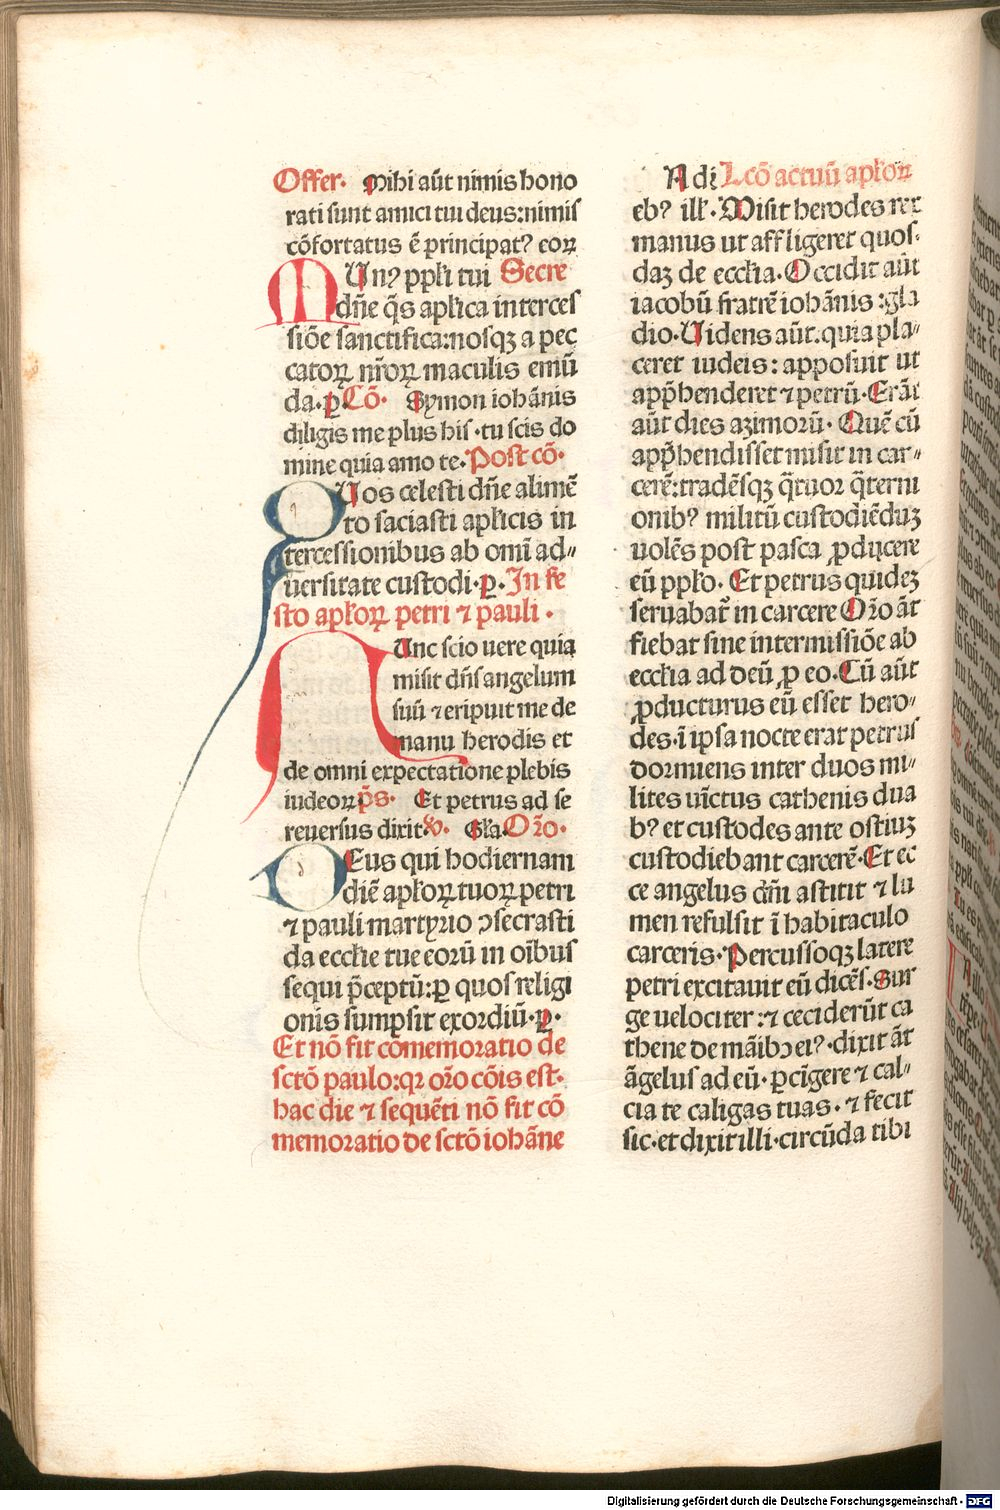 Offer. Mihi aūt nimis hono
rati sunt amici tui deus:nimis
cōfortatus ē principatꝰ eoꝝ
MUnꝰ ppłi tui Secre
dn̄e q̄s apłica interces
siōe sanctifica:nosqꝫ a pec
catoꝝ nr̄oꝝ maculis emū
da.p̱.Cō. Symon iohānis
diligis me plus his.tu scis do
mine quia amo te.Post cō.
QUos celesti dn̄e alimē
to saciasti apłicis in
tercessionibus ab omi ad⸗
uersitate custodi.p̱.In fe
sto apłoꝝ petri ⁊ pauli.
NUnc scio uere quia
misit dn̄s angelum
suū ⁊ eripuit me de
manu herodis et
de omni expectatione plebis
iudeoꝝ p̄s. Et petrus ad se
reuersus dixit.v̄. Gła.Oꝛ̄o.
DEus qui hodiernam
diē apłoꝝ tuoꝝ petri
⁊ pauli martyrio ↄsecrasti
da eccłie tue eorū in oībus
sequi p̄ceptū:ꝑ quos religi
onis sumpsit exordiū.p̱.
Et nō fit cōmemoratio de
sctō paulo:qꝛ oꝛ̄o cōis est.
hac die ⁊ sequēti nō fit cō
memoratio de sctō iohāne
Lcō actuū apłoꝝ
ebꝰ ill̄. Misit herodes rex
manus ut affligeret quos⸗
daꝫ de eccłia.Occidit aūt
iacobū fratrē iohānis:gla
dio.Uidens aūt.quia pla⸗
ceret iudeis:apposuit ut
app̄henderet ⁊ petrū.Erāt
aūt dies azimorū.Quē cū
app̄hendisset misit in car⸗
cerē:tradēsqꝫ q̄tuor q̄terni
onibꝰ militū custodiēduꝫ
uolēs post pasca ꝓducere
eū ppło.Et petrus quideꝫ
seruabat̄ in carcere Oꝛ̄o āt
fiebat sine intermissiōe ab
eccłia ad deū ꝓ eo.Cū aūt
ꝓducturus eū esset hero⸗
des.ī ipsa nocte erat petrus
dormiens inter duos mi⸗
lites uīctus cathenis dua
bꝰ et custodes ante ostiuꝫ
custodiebant carcerē.Et ec
ce angelus dn̄i astitit ⁊ lu
men refulsit ī habitaculo
carceris.Percussoqꝫ latere
petri excitauit eū dicēs.Sur
ge uelociter:⁊ ceciderūt ca
thene de māibꝫ eiꝰ.dixit āt
āgelus ad eū.p̱cīgere ⁊ cal⸗
cia te caligas tuas.⁊ fecit
sic.et dixit illi.circūda tibi
Digitalisierung gefördert durch die Deutsche Forschungsgemeinschaft - DFG